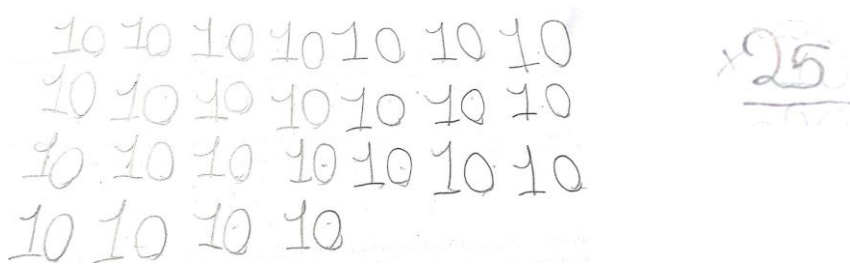 10 10 10 10 10 10 10
10 10 10 10 10 10 10
10 10 10 10 10 10 10
10 10 10 10
×25